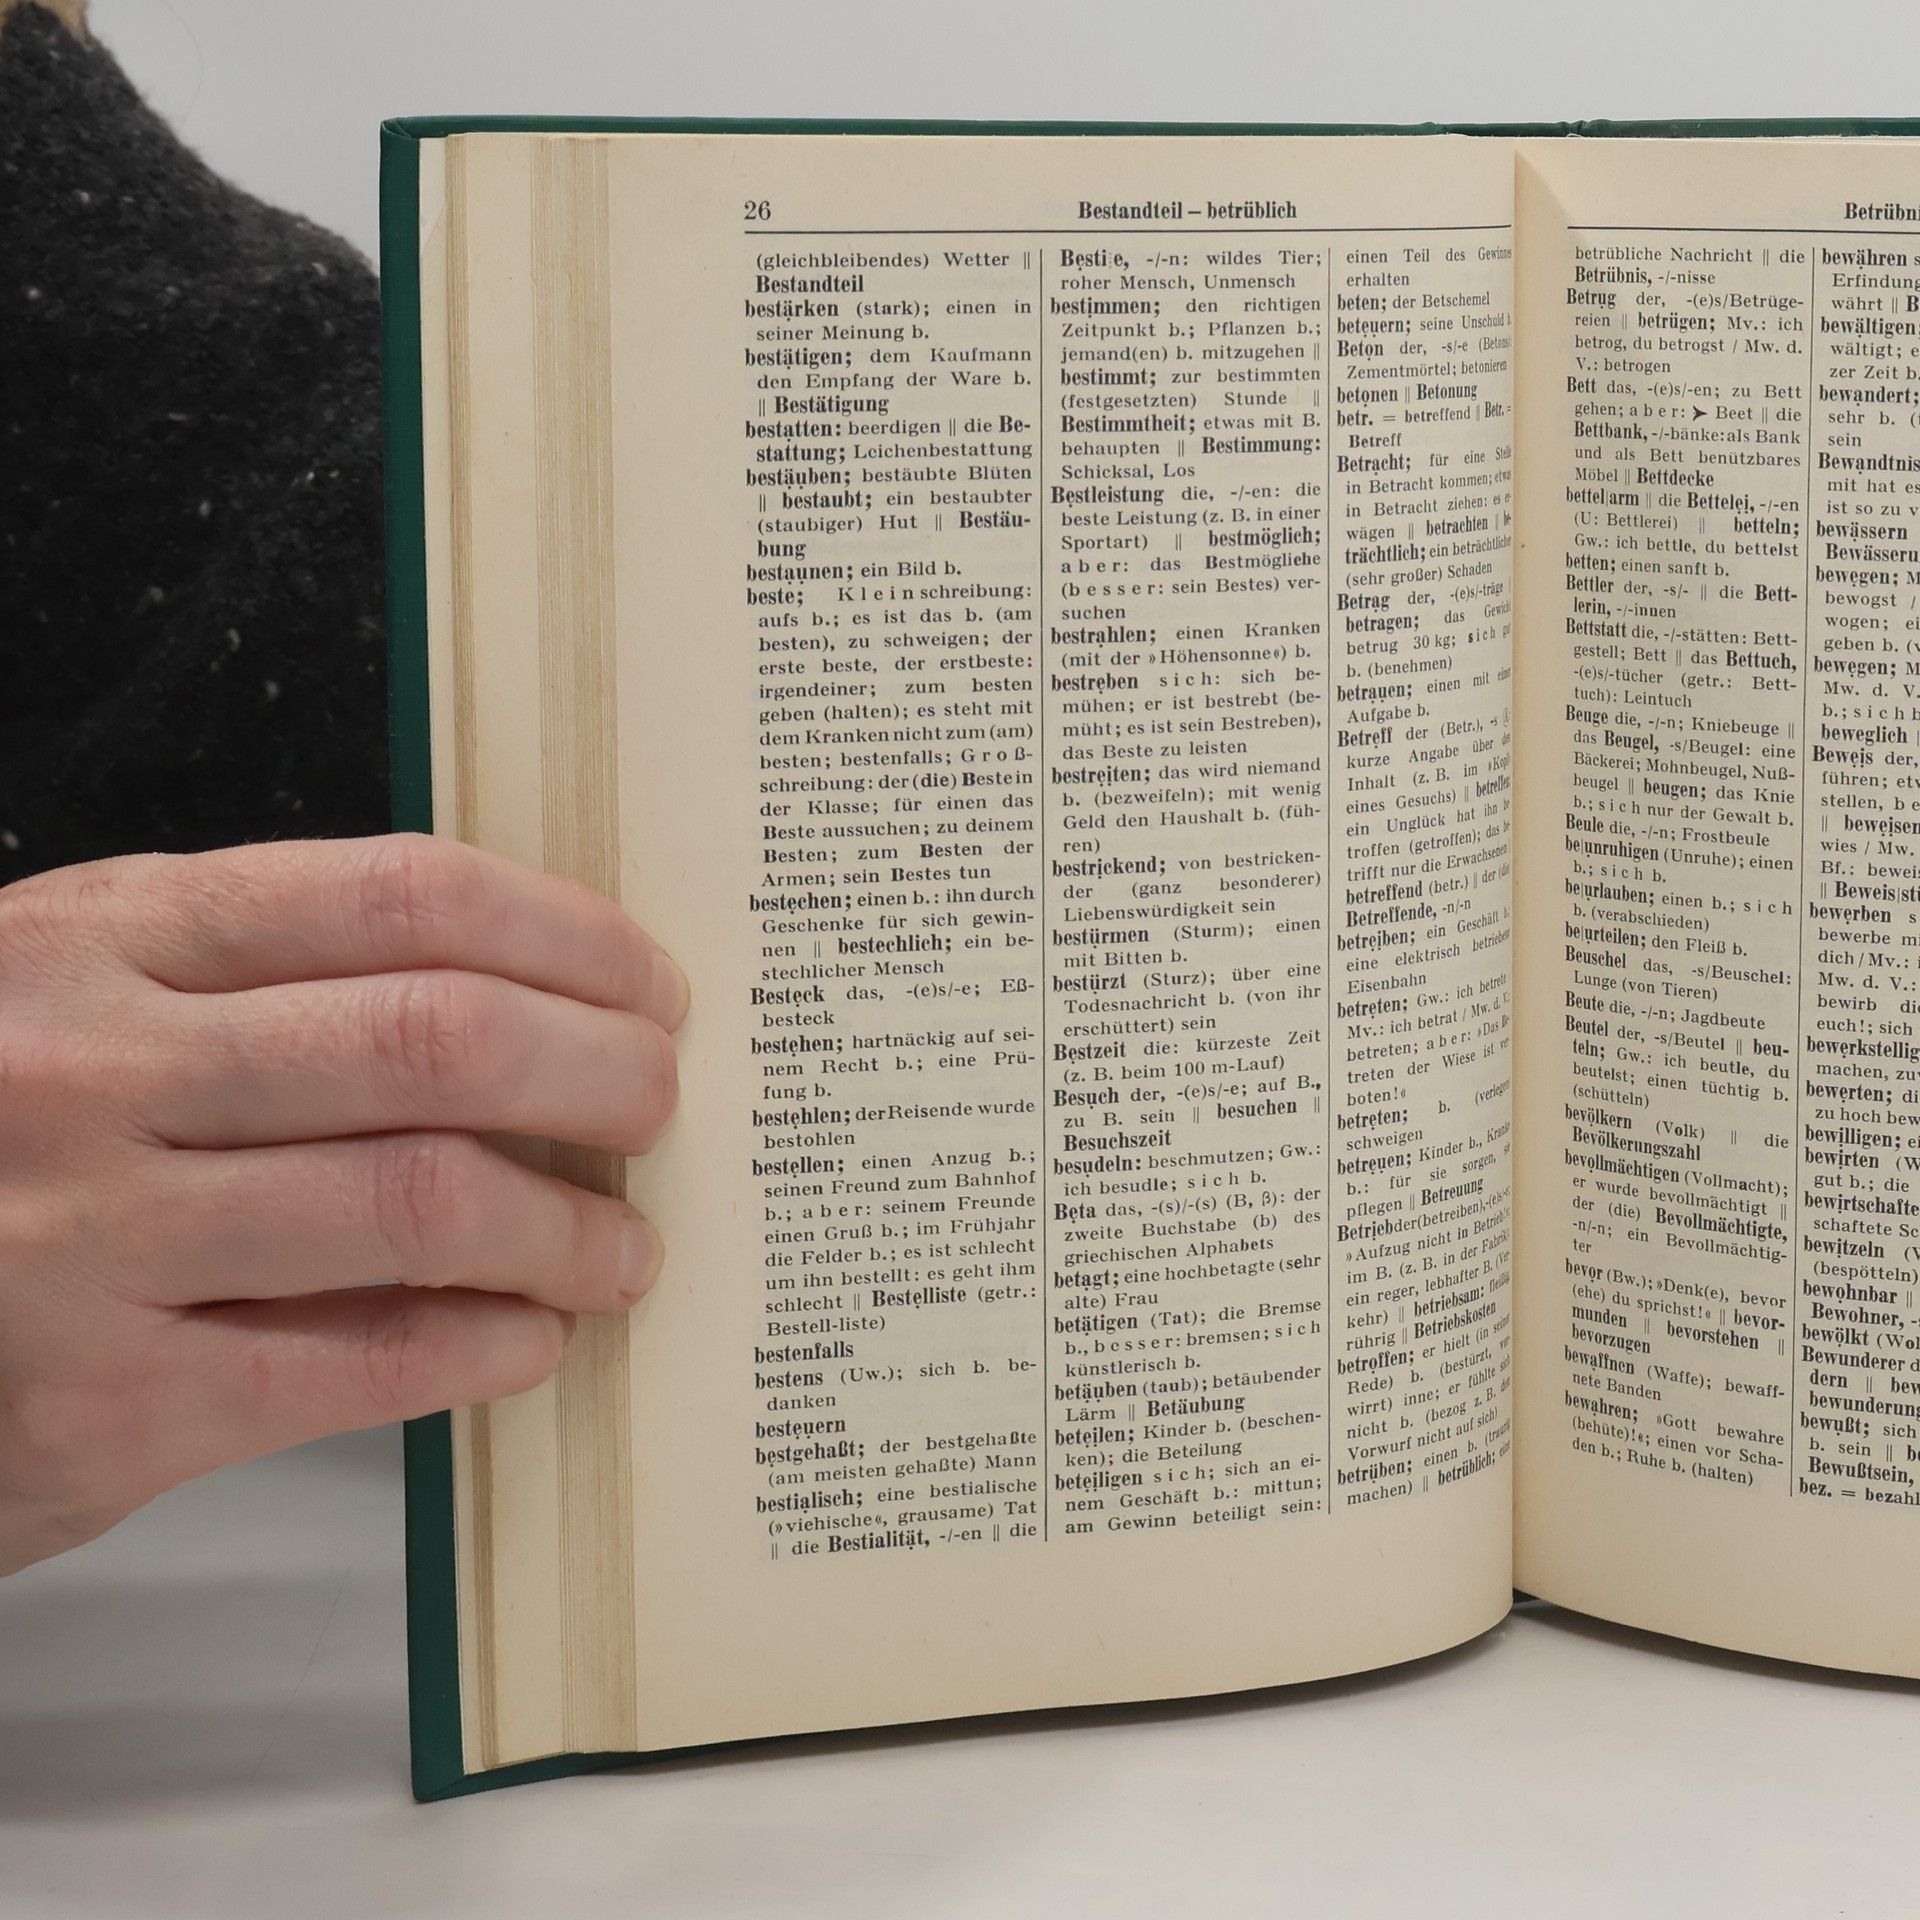 26
Bestandteil – betrüblich
(gleichbleibendes) Wetter ||
Bestandteil
bestärken (stark); einen in
seiner Meinung b.
bestätigen; dem Kaufmann
den Empfang der Ware b.
|| Bestätigung
bestatten: beerdigen || die Be-
stattung; Leichenbestattung
bestäuben; bestäubte Blüten
|| bestaubt; ein bestaubter
(staubiger) Hut || Bestäu-
bung
bestaunen; ein Bild b.
beste; Kleinschreibung:
aufs b.; es ist das b. (am
besten), zu schweigen; der
erste beste, der erstbeste:
irgendeiner; zum besten
geben (halten); es steht mit
dem Kranken nicht zum (am)
besten; bestenfalls; Groß-
schreibung: der (die) Beste in
der Klasse; für einen das
Beste aussuchen; zu deinem
Besten; zum Besten der
Armen; sein Bestes tun
bestechen; einen b.: ihn durch
Geschenke für sich gewin-
nen || bestechlich; ein be-
stechlicher Mensch
Besteck das, -(e)s/-e; Eß-
besteck
bestehen; hartnäckig auf sei-
nem Recht b.; eine Prü-
fung b.
bestehlen; der Reisende wurde
bestohlen
bestellen; einen Anzug b.;
seinen Freund zum Bahnhof
b.; aber: seinem Freunde
einen Gruß b.; im Frühjahr
die Felder b.; es ist schlecht
um ihn bestellt: es geht ihm
schlecht || Bestelliste (getr.:
Bestell-liste)
bestenfalls
bestens (Uw.); sich b. be-
danken
besteuern
bestgehaßt; der bestgehaßte
(am meisten gehaßte) Mann
bestialisch; eine bestialische
(»viehische«, grausame) Tat
|| die Bestialität, -/-en || die
Besti|e, -/-n: wildes Tier;
roher Mensch, Unmensch
bestimmen; den richtigen
Zeitpunkt b.; Pflanzen b.;
jemand(en) b. mitzugehen ||
bestimmt; zur bestimmten
(festgesetzten) Stunde ||
Bestimmtheit; etwas mit B.
behaupten || Bestimmung:
Schicksal, Los
Bestleistung die, -/-en: die
beste Leistung (z. B. in einer
Sportart) || bestmöglich;
aber: das Bestmögliche
(besser: sein Bestes) ver-
suchen
bestrahlen; einen Kranken
(mit der »Höhensonne«) b.
bestreben sich: sich be-
mühen; er ist bestrebt (be-
müht; es ist sein Bestreben),
das Beste zu leisten
bestreiten; das wird niemand
b. (bezweifeln); mit wenig
Geld den Haushalt b. (füh-
ren)
bestrickend; von bestricken-
der (ganz besonderer)
Liebenswürdigkeit sein
bestürmen (Sturm); einen
mit Bitten b.
bestürzt (Sturz); über eine
Todesnachricht b. (von ihr
erschüttert) sein
Bestzeit die: kürzeste Zeit
(z. B. beim 100 m-Lauf)
Besuch der, -(e)s/-e; auf B.,
zu B. sein || besuchen ||
Besuchszeit
besudeln: beschmutzen; Gw.:
ich besudle; sich b.
Beta das, -(s)/-(s) (B, β): der
zweite Buchstabe (b) des
griechischen Alphabets
betagt; eine hochbetagte (sehr
alte) Frau
betätigen (Tat); die Bremse
b., besser: bremsen; sich
künstlerisch b.
betäuben (taub); betäubender
Lärm || Betäubung
beteilen; Kinder b. (beschen-
ken); die Beteilung
beteiligen sich; sich an ei-
nem Geschäft b.: mittun;
am Gewinn beteiligt sein:
einen Teil des Gewinnes
erhalten
beten; der Betschemel
beteuern; seine Unschuld
Beton der, -s/-e
Zementmörtel; betonieren
betonen || Betonung
betr. = betreffend || Betr. =
Betreff
Betracht; für eine Stelle
in Betracht kommen; etwas
in Betracht ziehen: es er-
wägen || betrachten || be-
trächtlich; ein beträchtlicher
(sehr großer) Schaden
Betrag der, -(e)s/-träge
betragen; das Gewicht
betrug 30 kg; sich gut
b. (benehmen)
betrauen; einen mit einer
Aufgabe b.
Betreff der (Betr.), -s
kurze Angabe über den
Inhalt (z. B. im »Kopf«
eines Gesuchs) || betreffen;
ein Unglück hat ihn be-
troffen (getroffen); das be-
trifft nur die Erwachsenen
betreffend (betr.) || der (die)
Betreffende, -n/-n
betreiben; ein Geschäft b.;
eine elektrisch betriebene
Eisenbahn
betreten; Gw.: ich betrete
Mv.: ich betrat / Mw. d. V.:
betreten; aber: »Das Be-
treten der Wiese ist ver-
boten!«
betreten; b. (verlegen)
schweigen
betreuen; Kinder b., Kranke
b.: für sie sorgen, sie
pflegen || Betreuung
Betrieb der (betreiben), -(e)s/-e;
»Aufzug nicht in Betrieb!«;
im B. (z. B. in der Fabrik);
ein reger, lebhafter B. (Ver-
kehr) || betriebsam: fleißig,
rührig || Betriebskosten
betroffen; er hielt (in seiner
Rede) b. (bestürzt, ver-
wirrt) inne; er fühlte sich
nicht b. (bezog z. B. den
Vorwurf nicht auf sich)
betrüben; einen b. (traurig
machen) || betrüblich; eine
Betrübni
betrübliche Nachricht || die
Betrübnis, -/-nisse
Betrug der, -(e)s/Betrüge-
reien || betrügen; Mv.: ich
betrog, du betrogst / Mw. d.
V.: betrogen
Bett das, -(e)s/-en; zu Bett
gehen; aber: ➤ Beet || die
Bettbank, -/-bänke: als Bank
und als Bett benützbares
Möbel || Bettdecke
bettel|arm || die Bettelei, -/-en
(U: Bettlerei) || betteln;
Gw.: ich bettle, du bettelst
betten; einen sanft b.
Bettler der, -s/- || die Bett-
lerin, -/-innen
Bettstatt die, -/-stätten: Bett-
gestell; Bett || das Bettuch,
-(e)s/-tücher (getr.: Bett-
tuch): Leintuch
Beuge die, -/-n; Kniebeuge ||
das Beugel, -s/Beugel: eine
Bäckerei; Mohnbeugel, Nuß-
beugel || beugen; das Knie
b.; sich nur der Gewalt b.
Beule die, -/-n; Frostbeule
be|unruhigen (Unruhe); einen
b.; sich b.
be|urlauben; einen b.; sich
b. (verabschieden)
be|urteilen; den Fleiß b.
Beuschel das, -s/Beuschel:
Lunge (von Tieren)
Beute die, -/-n; Jagdbeute
Beutel der, -s/Beutel || beu-
teln; Gw.: ich beutle, du
beutelst; einen tüchtig b.
(schütteln)
bevölkern (Volk) || die
Bevölkerungszahl
bevollmächtigen (Vollmacht);
er wurde bevollmächtigt ||
der (die) Bevollmächtigte,
-n/-n; ein Bevollmächtig-
ter
bevor (Bw.); »Denk(e), bevor
(ehe) du sprichst!« || bevor-
munden || bevorstehen ||
bevorzugen
bewaffnen (Waffe); bewaff-
nete Banden
bewahren; »Gott bewahre
(behüte)!«; einen vor Scha-
den b.; Ruhe b. (halten)
bewähren s
Erfindung
währt || B
bewältigen;
wältigt; e
zer Zeit b.
bewandert;
sehr b. (
sein
Bewandtnis
mit hat es
ist so zu v
bewässern
Bewässeru
bewegen; M
bewogst /
wogen; ei
geben b. (v
bewegen; M
Mw. d. V.
b.; sich b
beweglich |
Beweis der,
führen; etw
stellen, be
|| beweisen
wies / Mw.
Bf.: beweis
|| Beweis|stü
bewerben s
bewerbe mi
dich / Mv.: i
Mw. d. V.:
bewirb di
euch!; sich
bewerkstellig
machen, zuw
bewerten; di
zu hoch bew
bewilligen; ei
bewirten (W
gut b.; die
bewirtschafte
schaftete Sc
bewitzeln (V
(bespötteln)
bewohnbar ||
Bewohner, -s
bewölkt (Wol
Bewunderer d
dern || bew
bewunderung
bewußt; sich
b. sein || be
Bewußtsein,
bez. = bezahl